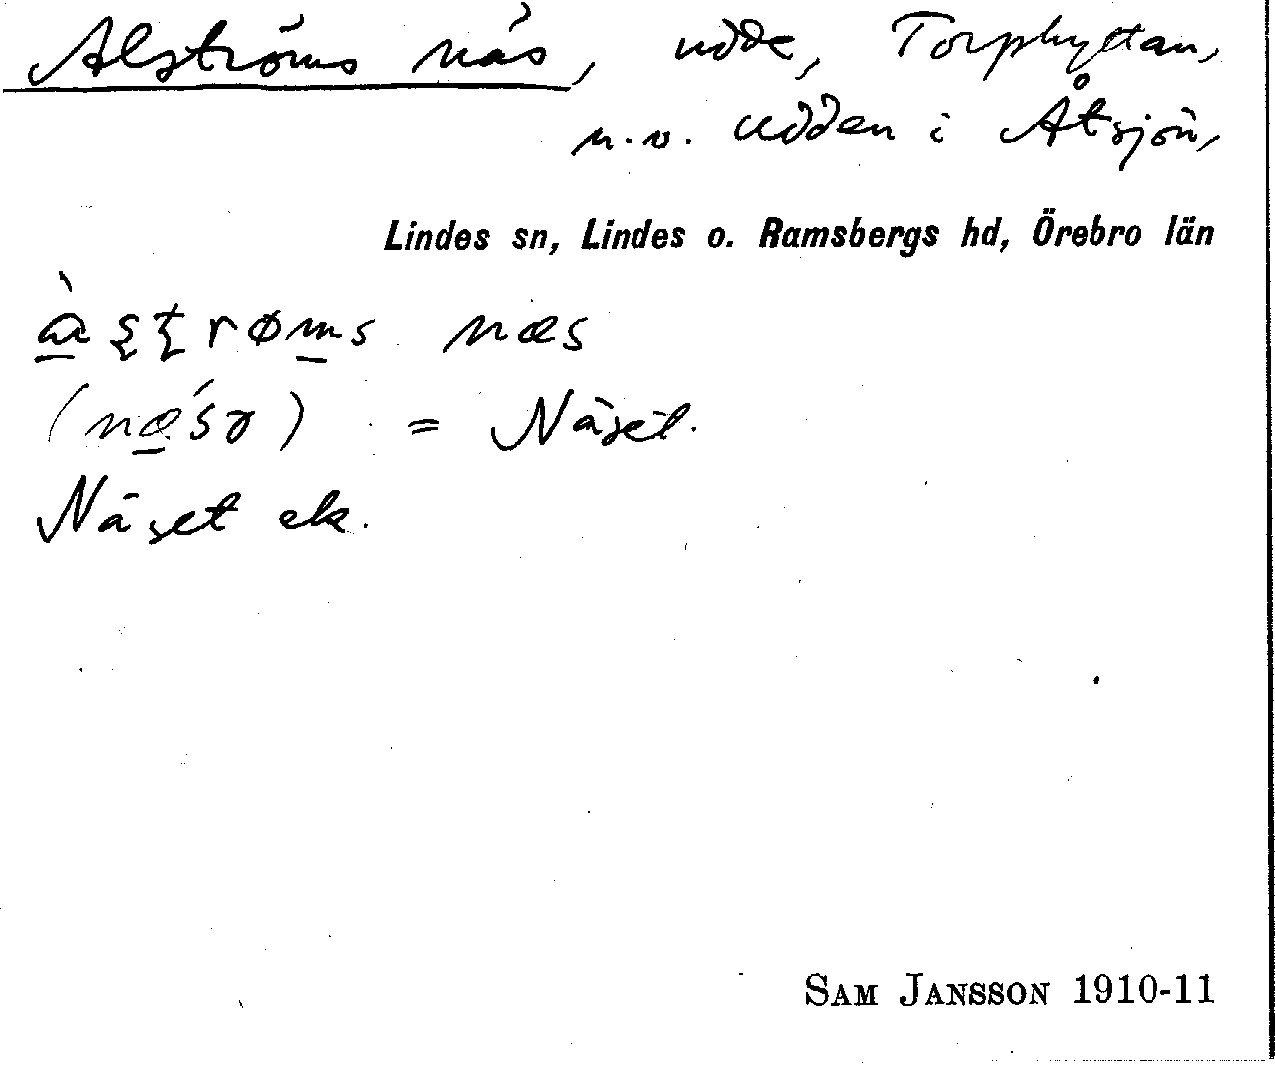 Alströms näs, udde, Torphyttan,
n.v. udden i Åtsjön,
Lindes sn, Lindes o. Ramsbergs hd, Örebro län
= Näset.
Näset ek.
SAM JANSSON 1910-11